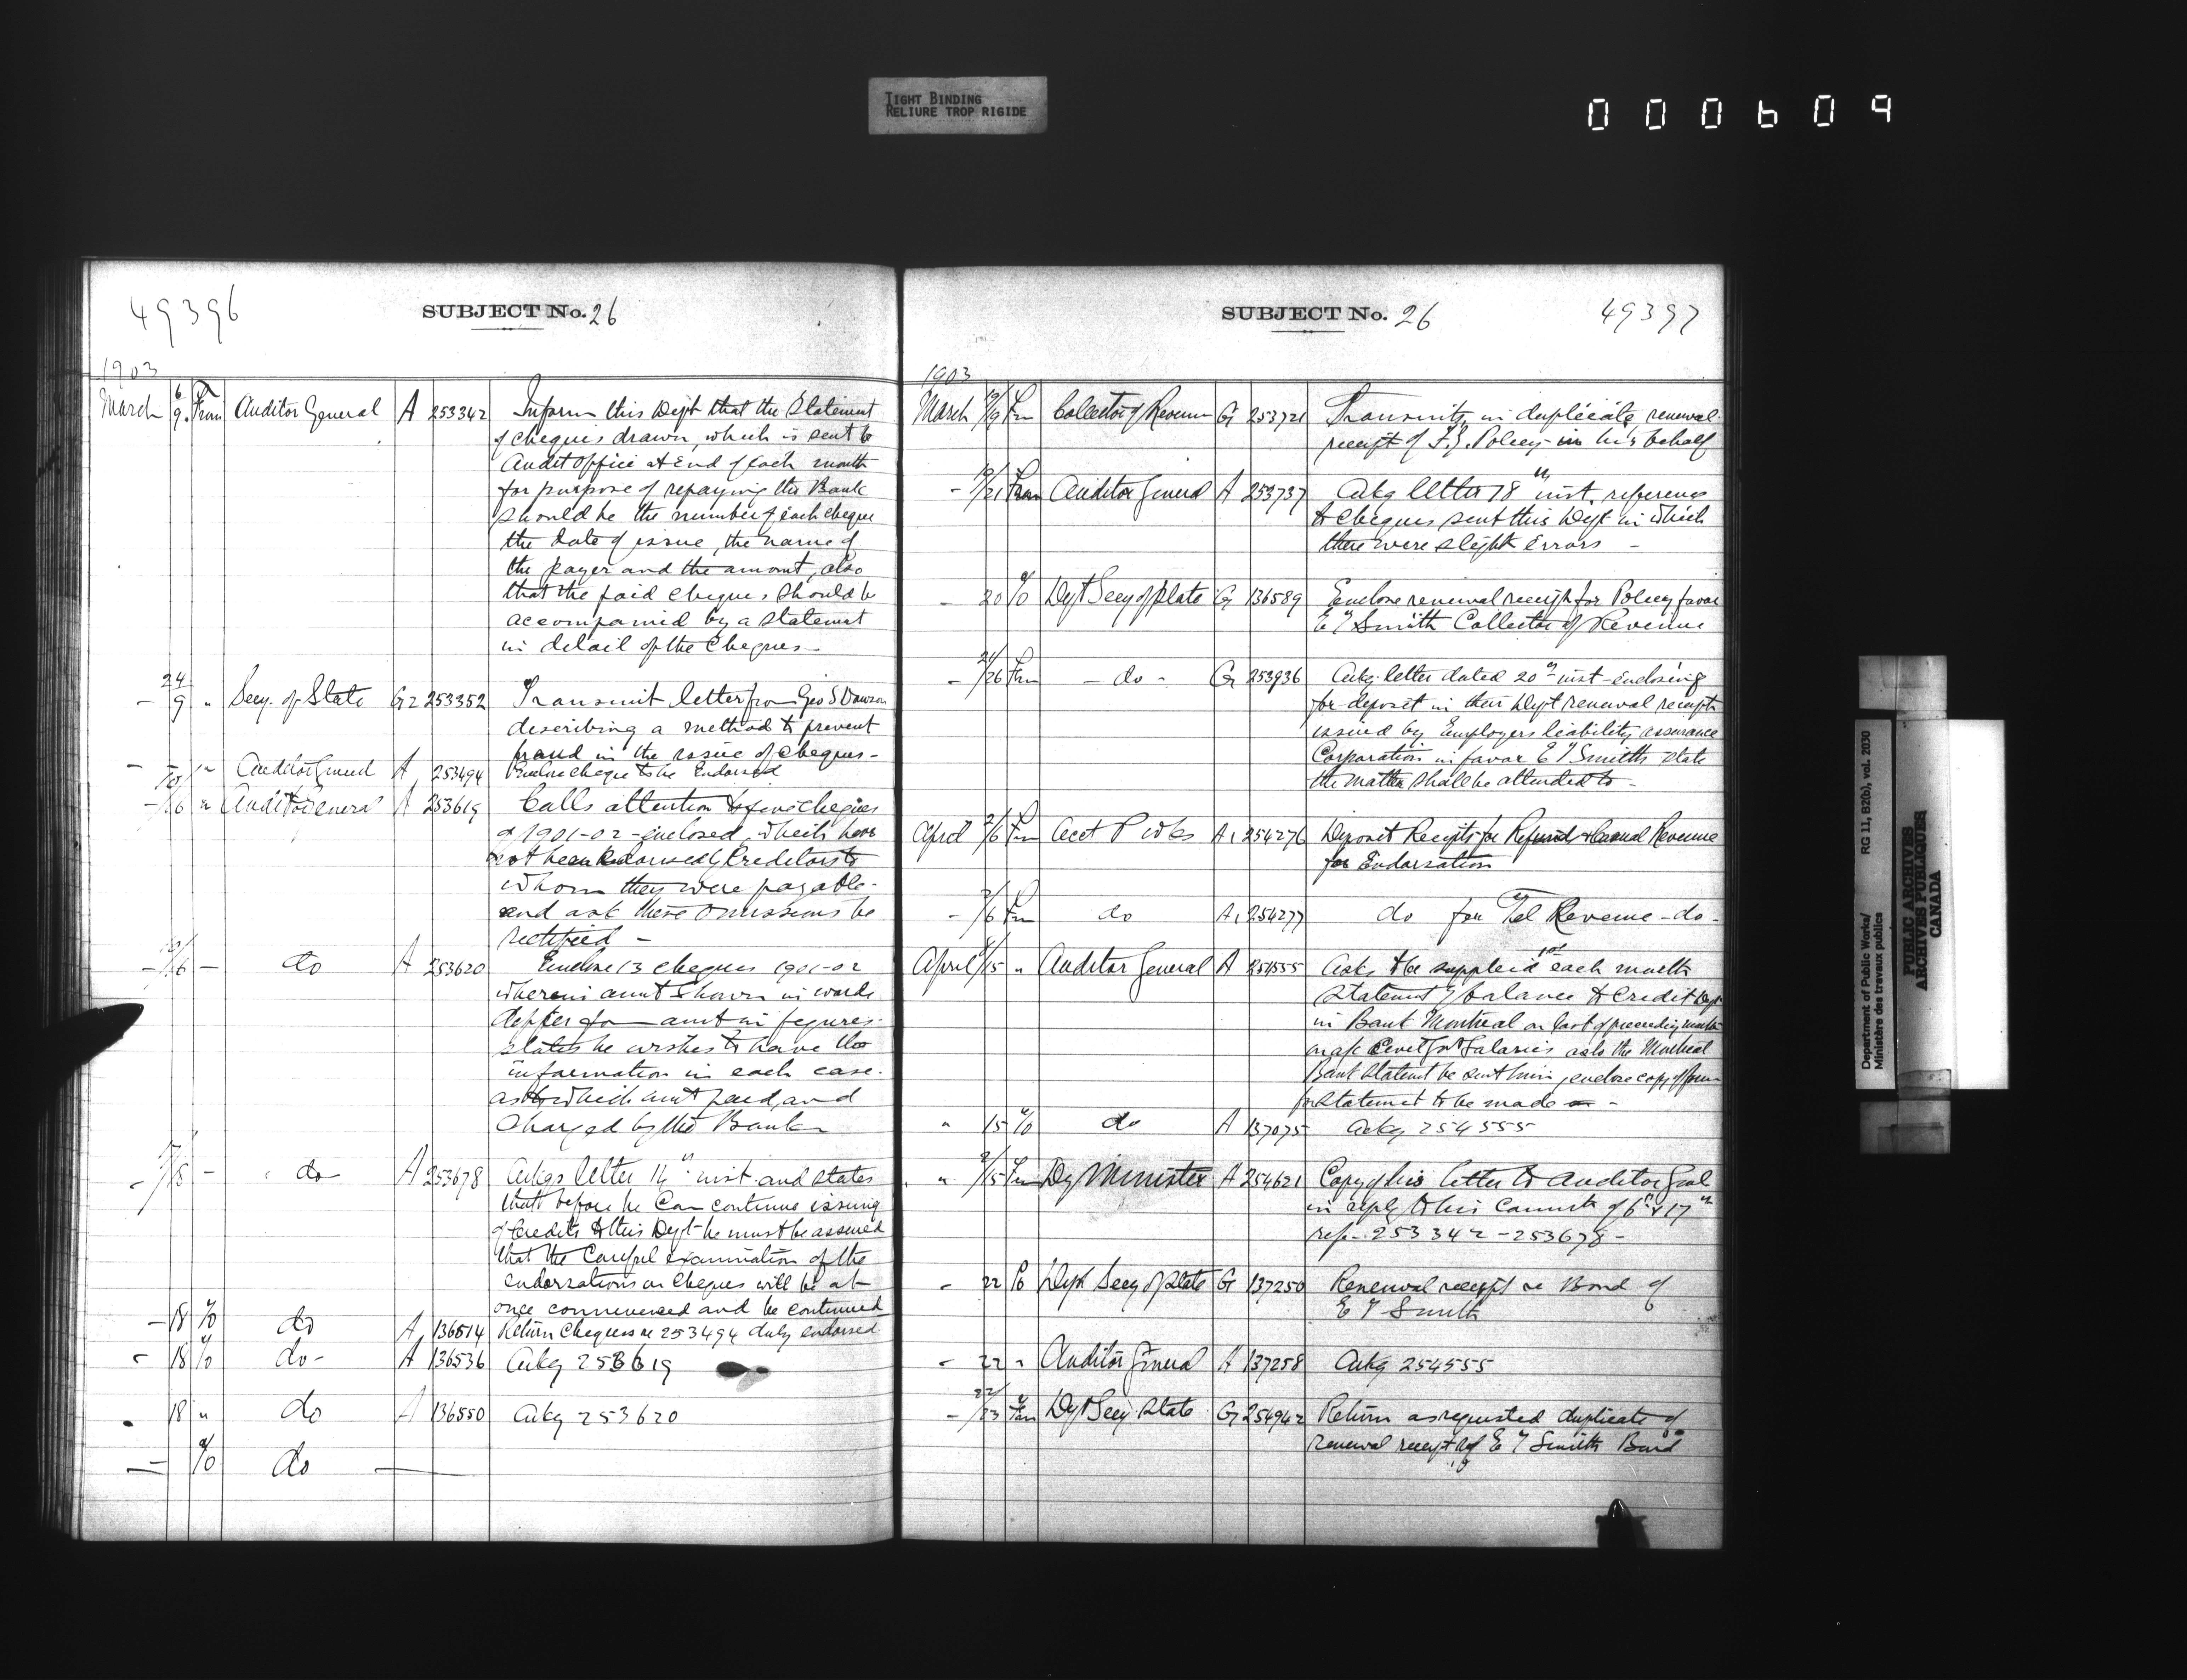 TIGHT BINDING
RELIURE TROP RIGIDE
000609
49396
SUBJECT No. 26
1903
March 6/9 From Auditor General A 253342 Inform this Dept that the Statement
of cheques drawn, which is sent to
Audit Office at End of each month
for purpose of repaying the Bank
should be the number of each cheque
the date of issue, the name of
the payee and the amount, also
that the paid cheques should be
accompanied by a statement
in detail of the Cheques -
- 24/9 " Secy. of State G2 253352 Transmit letter from Geo S Dawson
describing a method to prevent
fraud in the issue of cheques -
- " Auditor General A 253494 Enclose cheque to be Endorsed
- /16 " Auditor General A 253619 Calls attention to five cheques
of 1901-02 - enclosed, which have
not been Endorsed by Creditors to
whom they were payable -
and ask these omissions be
rectified -
- /16 - do A 253620 Enclose 13 cheques 1901-02
wherein amt shown in words
differ from amt in figures -
states he wishes to have the
information in each case.
as to which amt paid, and
charged by the Bank
- 17/18 - do A 253678 Ackgs letter 14th inst. and states
that before he can continue issuing
of Credits to this Dept he must be assured
that the Careful examination of the
endorsations on cheques will be at
once commenced and be continued
- 18 To do A 136514 Return Cheques re 253494 duly endorsed
- 18 To do - A 136536 Ackg 253619
18 " do A 136550 Ackg 253620
- To do -
SUBJECT No. 26
49397
1903
March 19/19 Fm Collector of Revenue G 253721 Transmits, in duplicate, renewal
receipt of F.G. Policy - in his behalf
- /21 From Auditor General A 253737 Ackg letter 18th inst. reference
to cheques sent this Dept in which
there were slight errors -
- 20 To Dept Secy of State G 136589 Enclose renewal receipt for Policy favor
E T Smith Collector of Revenue
- 24/26 Fm - do - G 253936 Ackg. letter dated 20th inst - enclosing
for deposit in their Dept renewal receipts
issued by Employers liability assurance
Corporation in favor E T Smith state
the matter shall be attended to -
April 2/6 Fm Acct P Wks A1 254276 Deposit Receipts for Refunds & Casual Revenue
for Endorsation
- /6 Fm do A1 254277 do for Tel Revenue - do -
April /15 " Auditor General A 254555 Asks to be supplied 1st each month
Statement of balance to Credit Dept
in Bank Montreal on last of preceding month
on a/c Civil Govt Salaries asks the Montreal
Bank Statement be sent him, enclose copy of form
for Statement to be made -
" 15 To do A 137075 Ackg 254555
" 9/15 Fm Dy Minister A 254621 Copy of his letter to Auditor Genl
in reply to his Commts of 6th & 17th
ref - 253342 - 253678 -
- 22 To Dept Secy of State G 137250 Renewal receipt re Bond of
E T Smith
- 22 " Auditor General A 137258 Ackg 254555
- 22/23 Fm Dept Secy State G 254942 Return as requested duplicate of
renewal receipt of E T Smith Bond
Department of Public Works/
Ministère des travaux publics
RG 11, B2(b), vol. 2030
PUBLIC ARCHIVES
ARCHIVES PUBLIQUES
CANADA